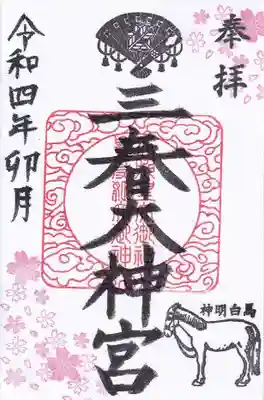 奉拝
三春大神宮
令和四年卯月
神明白馬